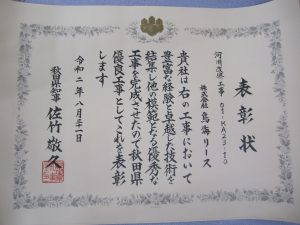 表彰状
河川改良工事 01-KA23-10
株式会社 鳥海リース
貴社は右の工事において
豊富な経験と卓越した技術を
結集し他の模範となる優秀な
工事を完成させたので秋田県
優良工事としてこれを表彰
します
令和二年八月三十一日
秋田県知事 佐竹敬久